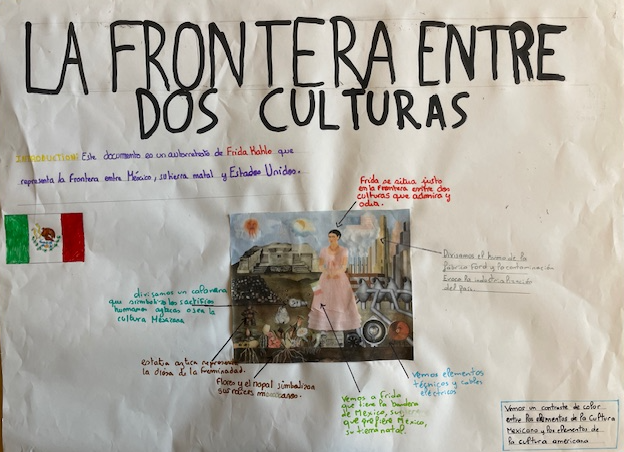 LA FRONTERA ENTRE
DOS CULTURAS
INTRODUCTION: Este documento es un autorretrato de Frida Kahlo que
representa la frontera entre México, su tierra natal y Estados Unidos.
Frida se situa justo
en la frontera entre dos
culturas que admira y
odia.
Divisamos el humo de la
fábrica Ford y la contaminación
Evoca la industrialización
del País.
divisamos un calavera
que simboliza los sacrificios
humanos aztecas o sea la
cultura Mexicana
estatua aztica represen
la diosa de la feminidad.
Flores y el nopal simbolizan
sus raíces
Vemos a frida
que tiene la bandera
de Mexico,
que prefiere Mexico,
su tierra natal.
Vemos elementos
técnicos y cables
eléctricos
Vemos un contraste de color
entre los elementos de la Cultura
Mexicana y los elementos de
la cultura americana